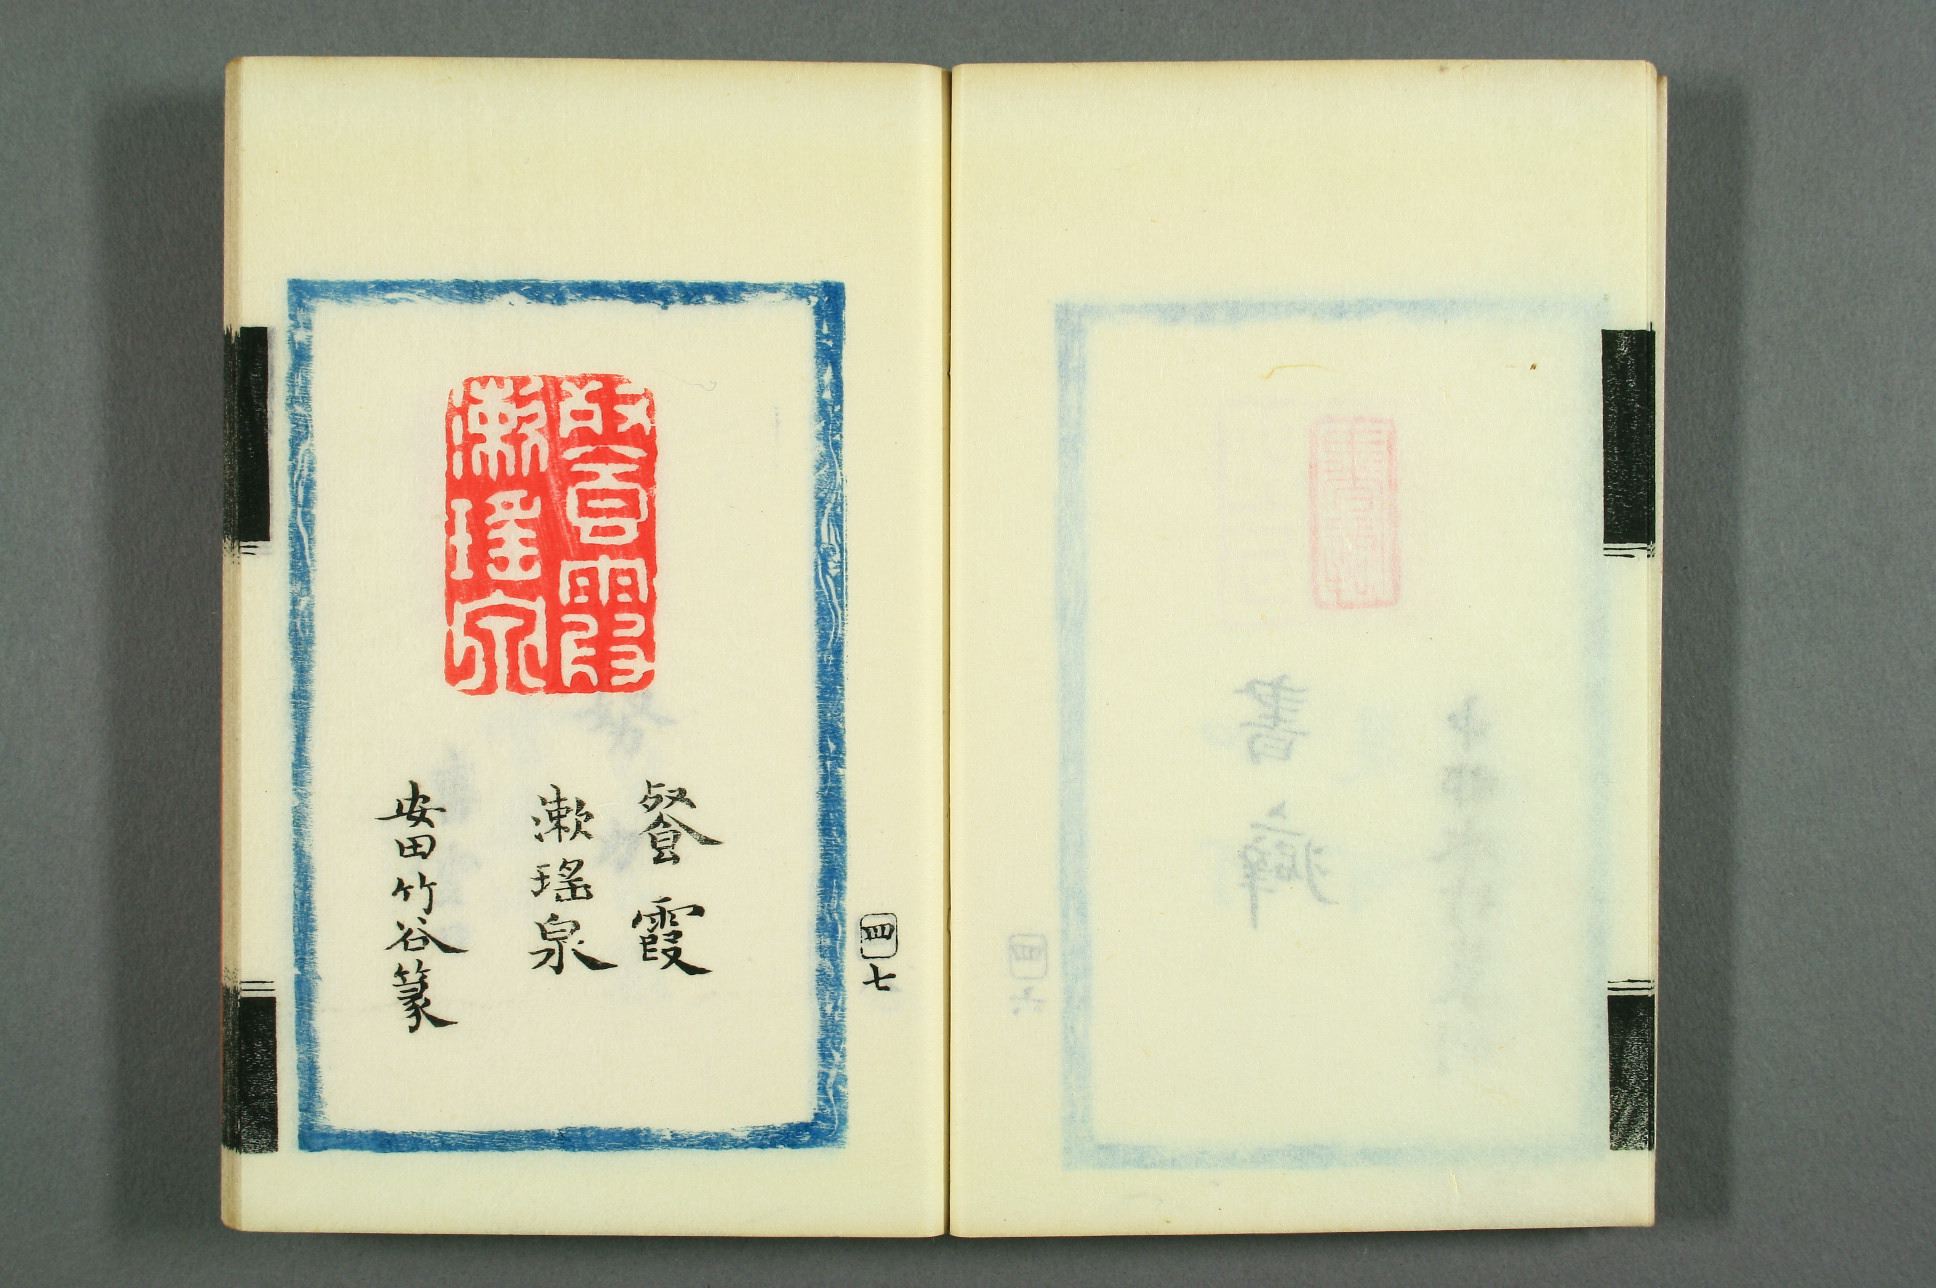 餐霞
漱瑤泉
餐霞
漱瑤泉
安田竹谷篆
四七
書癖
四六